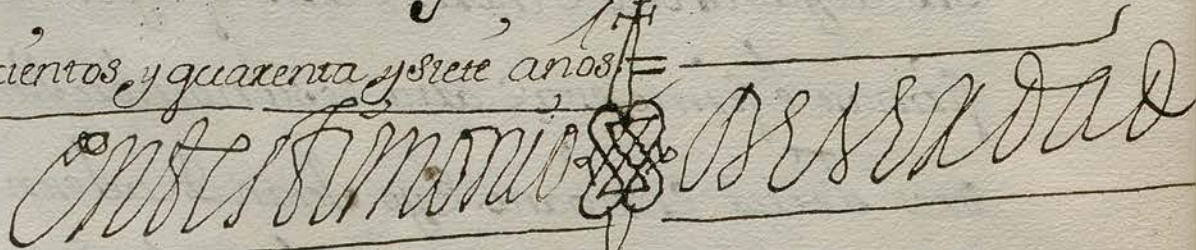 cientos, y quarenta y siete años =
En testimonio de verdad